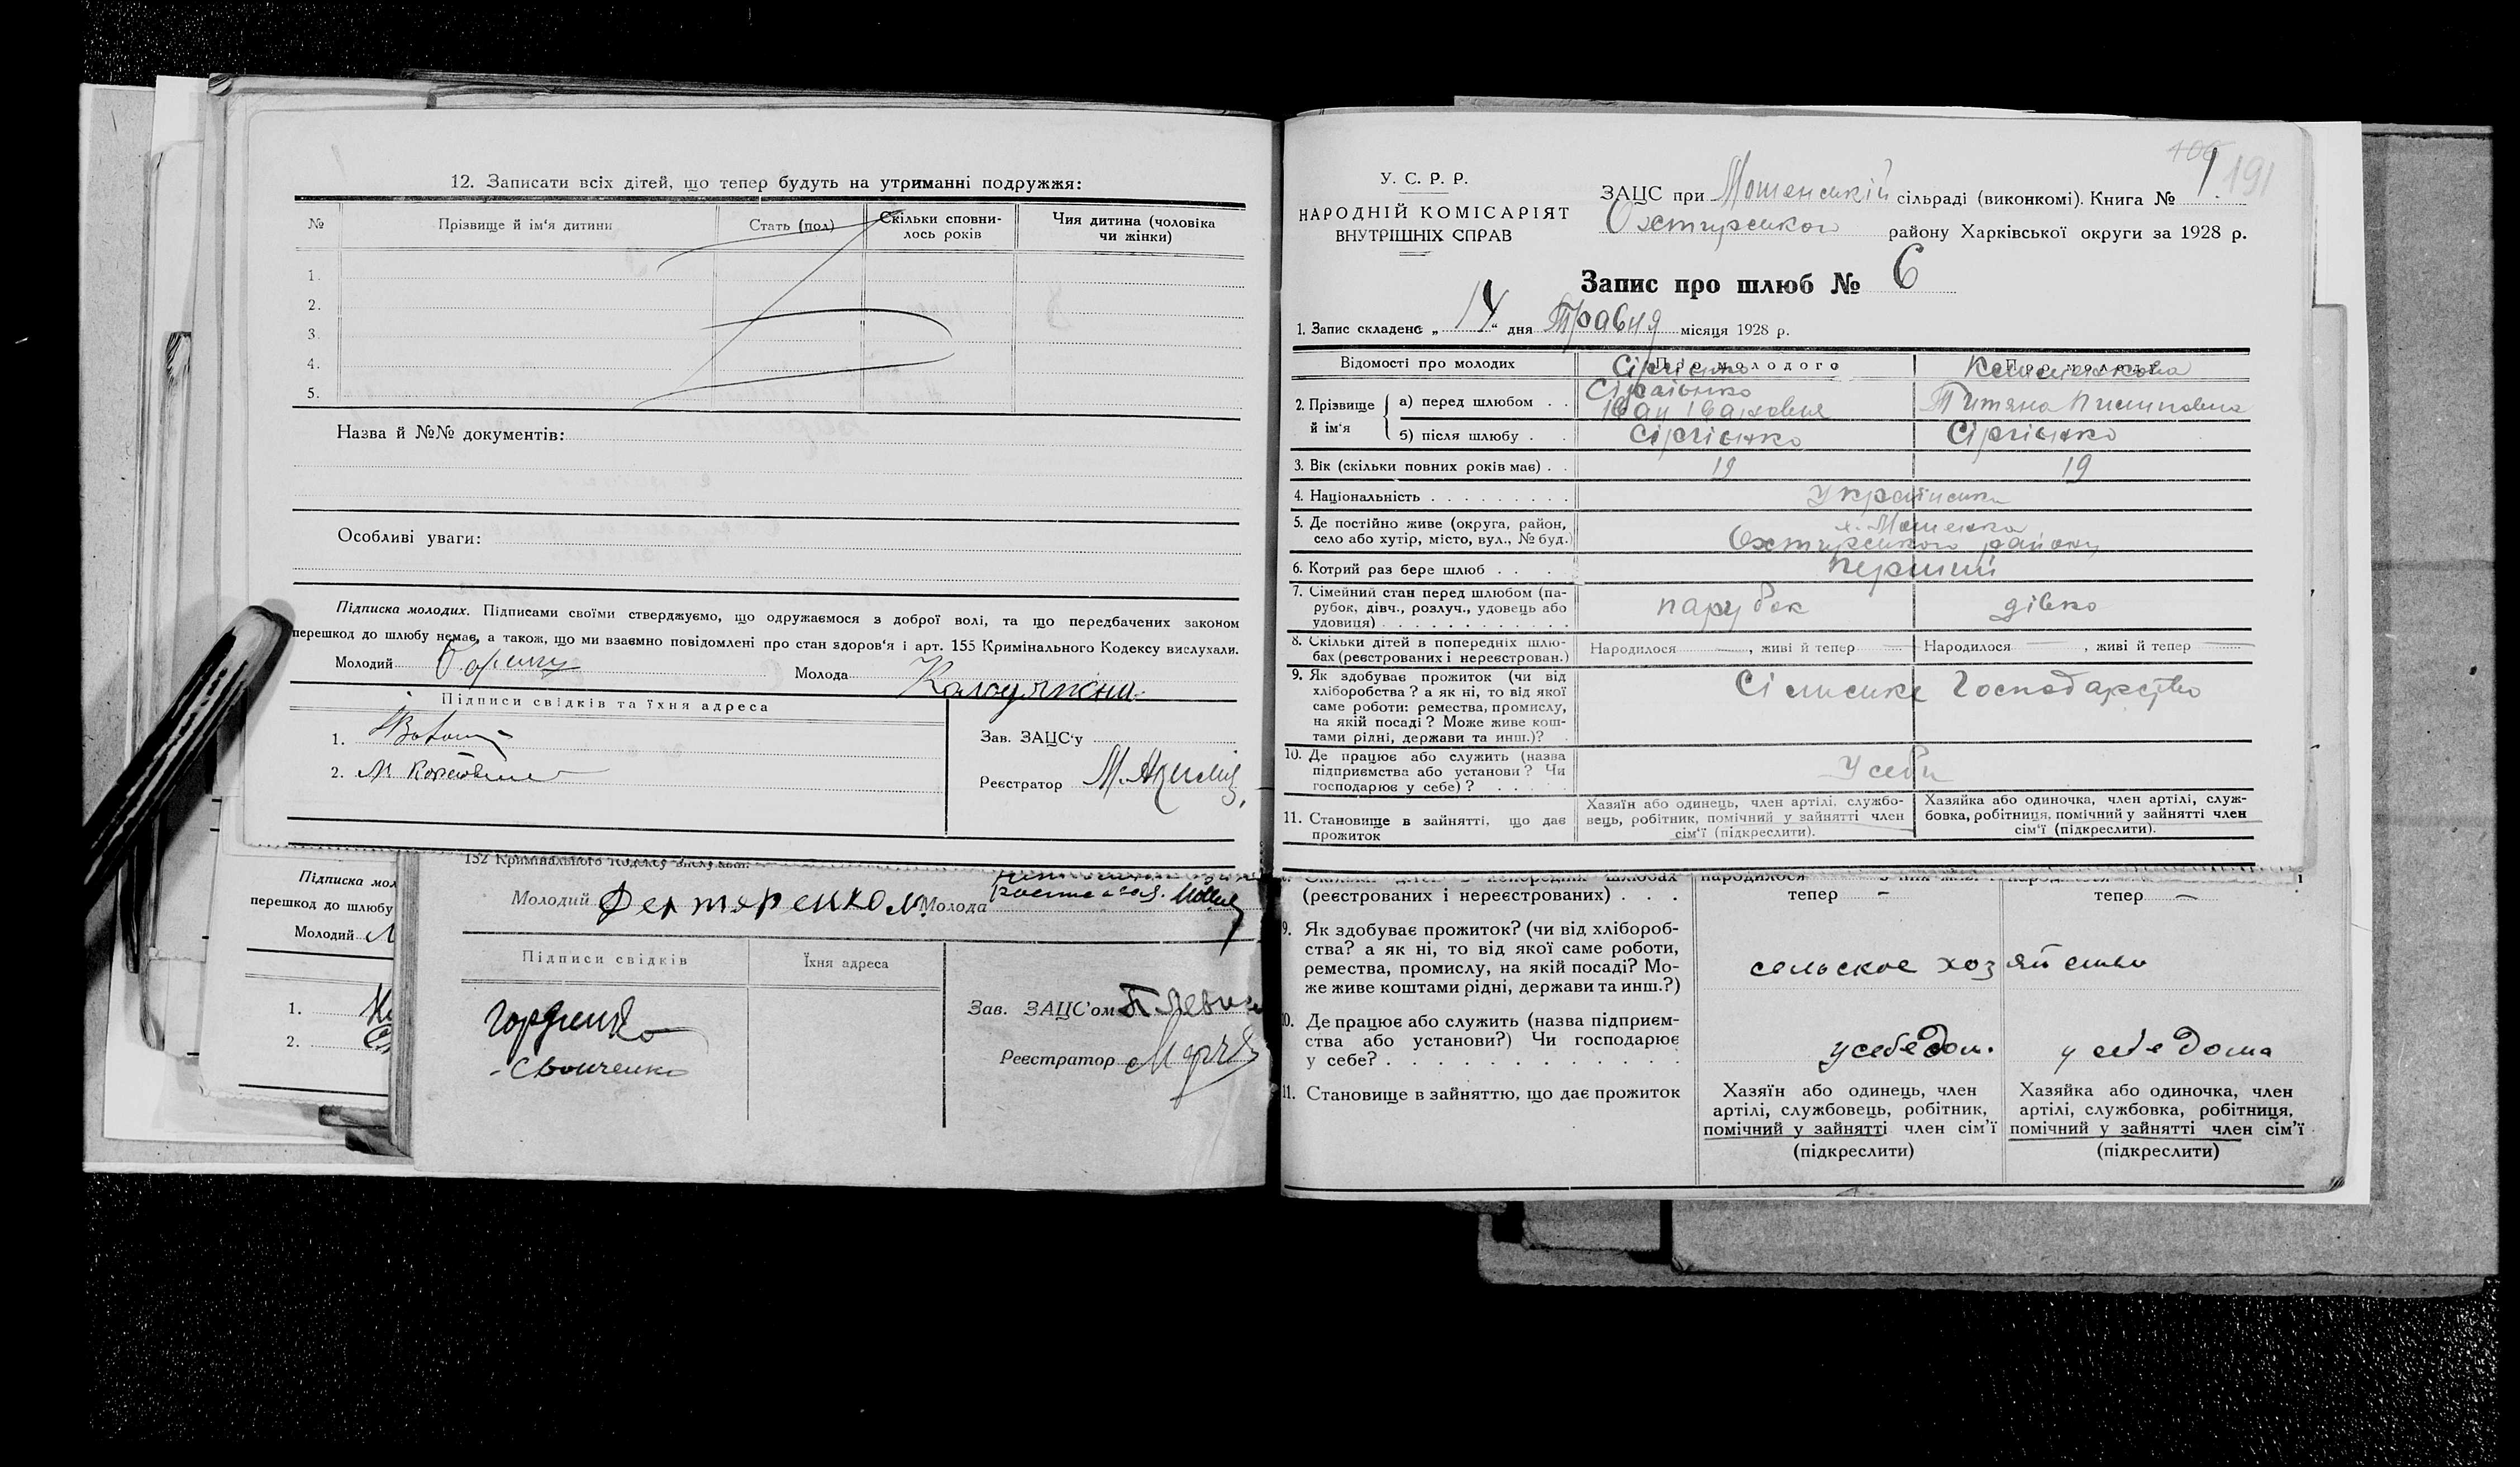 12. Записати всіх дітей, що тепер будуть на утриманні подружжя:
№ Прізвище й ім'я дитини Стать (пол) Скільки сповни-лось років Чия дитина (чоловіка чи жінки)
1.
2.
3.
4.
5.
Назва й №№ документів:
Особливі уваги:
Підписка молодих. Підписами своїми стверджуємо, що одружаємося з доброї волі, та що передбачених законом
перешкод до шлюбу немає, а також, що ми взаємно повідомлені про стан здоров'я і арт. 155 Кримінального Кодексу вислухали.
Молодий Молода
Підписи свідків та їхня адреса
1.
2.
Зав. ЗАЦС'у
Реєстратор
Підписка мол
перешкод до шлюбу
Молодий
1.
2.
152 Кримінального Кодексу вислухали.
Молодий Молода
Підписи свідків Їхня адреса
Гордиенко
Зав. ЗАЦС'ом
Реєстратор
406 191
У. С. Р. Р.
НАРОДНІЙ КОМІСАРІЯТ
ВНУТРІШНІХ СПРАВ
ЗАЦС при Мошенській сільраді (виконкомі). Книга № 1.
Охтирського району Харківської округи за 1928 р.
Запис про шлюб № 6
1. Запис складено „14“ дня Травня місяця 1928 р.
Відомості про молодих Про молодого Про молоду
2. Прізвище й ім'я
а) перед шлюбом Сіргієнко Іван Іванович Титяна
б) після шлюбу Сіргієнко Сіргієнко
3. Вік (скільки повних років має) 19 19
4. Національність Українська
5. Де постійно живе (округа, район,
село або хутір, місто, вул., № буд.) х. Мошенка
Охтирського району
6. Котрий раз бере шлюб перший
7. Сімейний стан перед шлюбом (па-
рубок, дівч., розлуч., удовець або
удовиця) парубок дівка
8. Скільки дітей в попередніх шлю-
бах (реєстрованих і нереєстрован.) Народилося —, живі й тепер — Народилося —, живі й тепер —
9. Як здобуває прожиток (чи від
хліборобства? а як ні, то від якої
саме роботи: ремества, промислу,
на якій посаді? Може живе кош-
тами рідні, держави та инш.)? Сільське Господарство
10. Де працює або служить (назва
підприємства або установи? Чи
господарює у себе)? У себи
11. Становище в зайнятті, що дає
прожиток
Хазяїн або одинець, член артілі, службо-
вець, робітник, помічний у зайнятті член
сім'ї (підкреслити).
Хазяйка або одиночка, член артілі, служ-
бовка, робітниця, помічний у зайнятті член
сім'ї (підкреслити).
(реєстрованих і нереєстрованих) тепер – тепер –
9. Як здобуває прожиток? (чи від хлібороб-
ства? а як ні, то від якої саме роботи,
ремества, промислу, на якій посаді? Мо-
же живе коштами рідні, держави та инш.?) сельское хозяйство
10. Де працює або служить (назва підприєм-
ства або установи?) Чи господарює
у себе? у себе дом. у себе дома
11. Становище в зайняттю, що дає прожиток
Хазяїн або одинець, член
артілі, службовець, робітник,
помічний у зайнятті член сім'ї
(підкреслити)
Хазяйка або одиночка, член
артілі, службовка, робітниця,
помічний у зайнятті член сім'ї
(підкреслити)